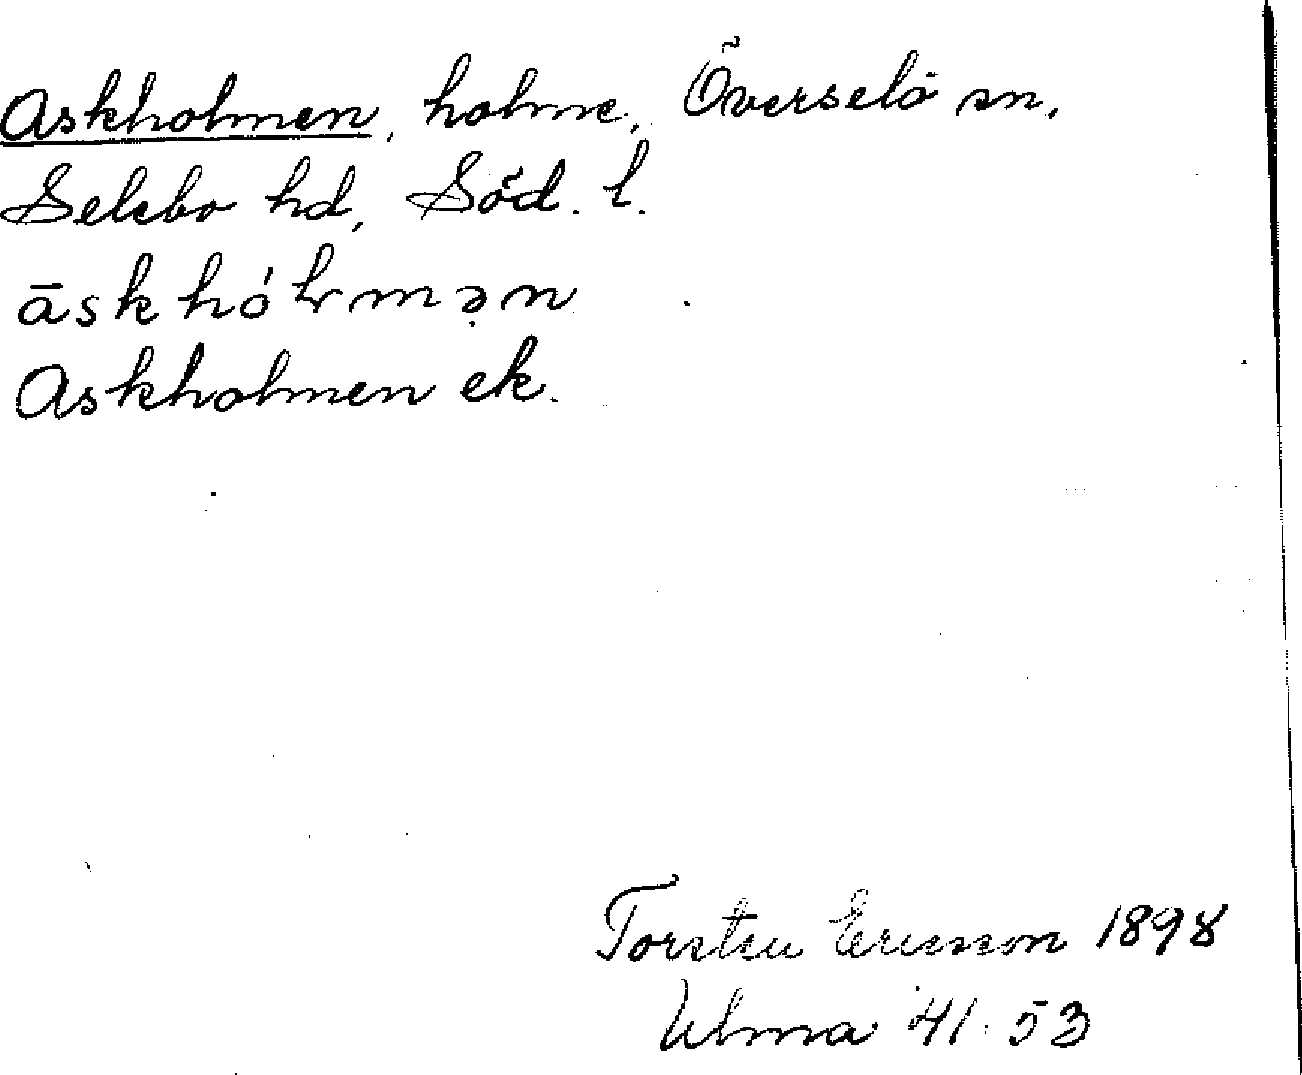 Askholmen, holme, Överselö sn,
Selebo hd, Söd. l.
āskhóɫmən
Askholmen ek.
Torsten Ericsson 1898
Ulma 41.53